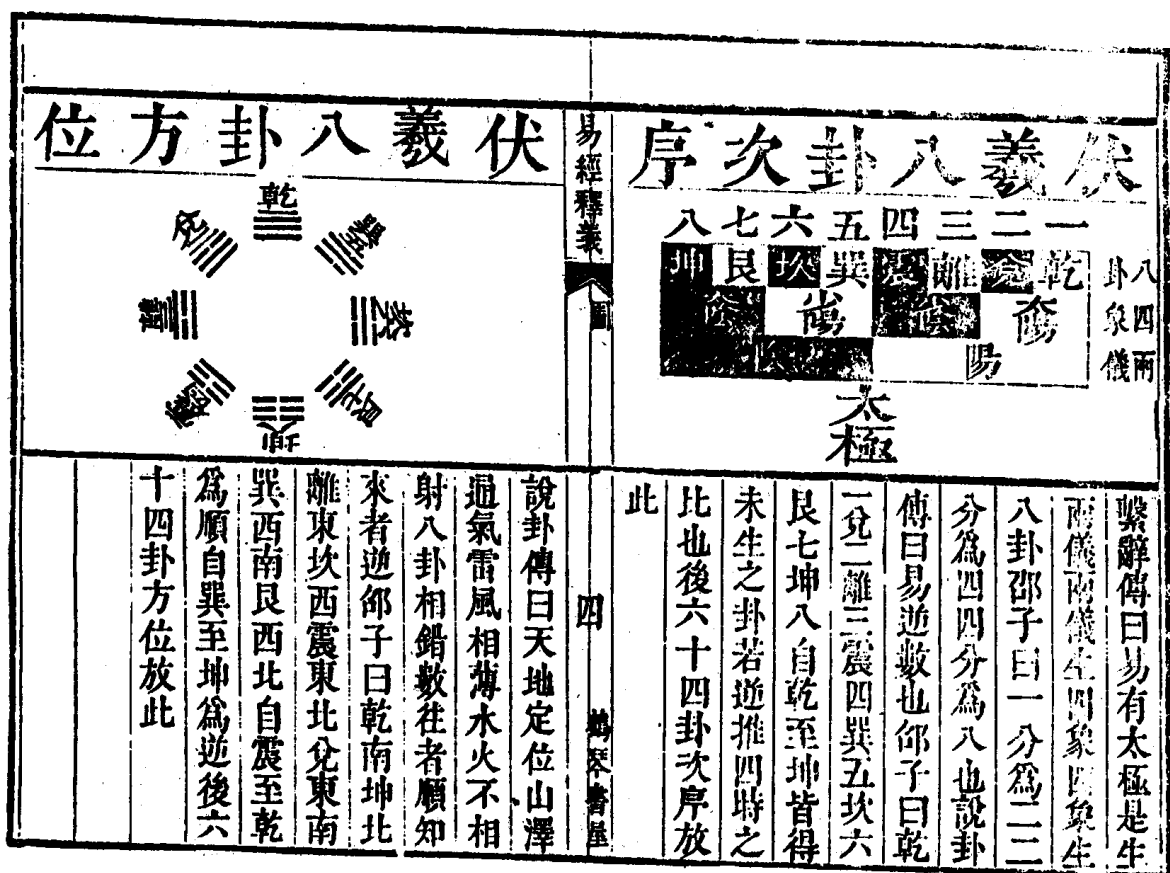 伏羲八卦次序
一二三四五六七八
八卦
四象
兩儀
乾兌離震巽坎艮坤
太陽 少陰 少陽 太陰
陽 陰
太極
繫辭傳曰易有太極是生
兩儀兩儀生四象四象生
八卦邵子曰一分爲二二
分爲四四分爲八也說卦
傳曰易逆數也邵子曰乾
一兌二離三震四巽五坎六
艮七坤八自乾至坤皆得
未生之卦若逆推四時之
比也後六十四卦次序放
此
易經釋義
圖
四
鶴琴書屋
伏羲八卦方位
乾
兌
離
震
坤
艮
坎
巽
說卦傳曰天地定位山澤
通氣雷風相薄水火不相
射八卦相錯數往者順知
來者逆邵子曰乾南坤北
離東坎西震東北兌東南
巽西南艮西北自震至乾
爲順自巽至坤爲逆後六
十四卦方位放此